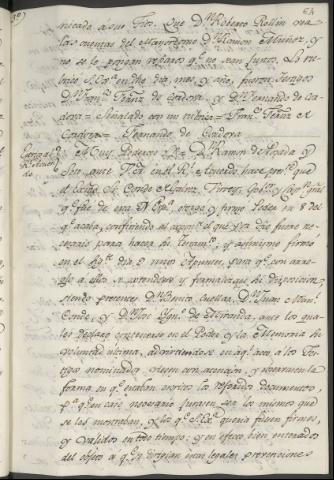 64
nicado a sus Tios. Que Dn. Roberto Rollin vea
las cuentas del Mayordomo Dn. Ramon Muñoz, y
no se le pongan reparos que no sean justos. La ru-
bricó S. Exa. en dho dia, mes, y año, fueron testigos
Dn. Franco. Fernz. de Cordova, y Dn. Fernando de Cor-
dova = Señalado con un rubrica = Franco. Fernz. de
Cordova = Fernando de Cordova
Muy Poderoso Sr. = Dn. Ramon de Posada y
Soto, ante V.A. en el Rl. Acuerdo hace presente que
el Exmo. Sr. Conde de Galvez, Virrey, Gobor. y Capn. Gral
que fué de esta N. Espa. otorgó y firmó Poder en 8 del
que acaba, confiriendo al
cesario para hacer su Testamto. y asimismo firmó
en el dia 9 unos Apuntes, para que con arre-
glo a ellos se entendiese y formalizase su disposicion,
siendo presentes Dn. Benito Cuellar, Dn. Juan Manl.
Conde, y Dn. José Ygno. de Miranda, ante los qua-
les declaró contenerse en el Poder y la Memoria su
voluntad ultima, advirtiendose en aql. acto a los Tes-
tigos nominados, viesen con atencion, y observasen la
forma en que estaban escritos los referidos documentos,
pa. que en caso necesario jurasen ser los mismos que
se les mostraban, y los que S. Exa. queria fuesen firmes,
y validos en todo tiempo; y en efecto bien enterados
del objeto a que se dirigian estas legales prevenciones